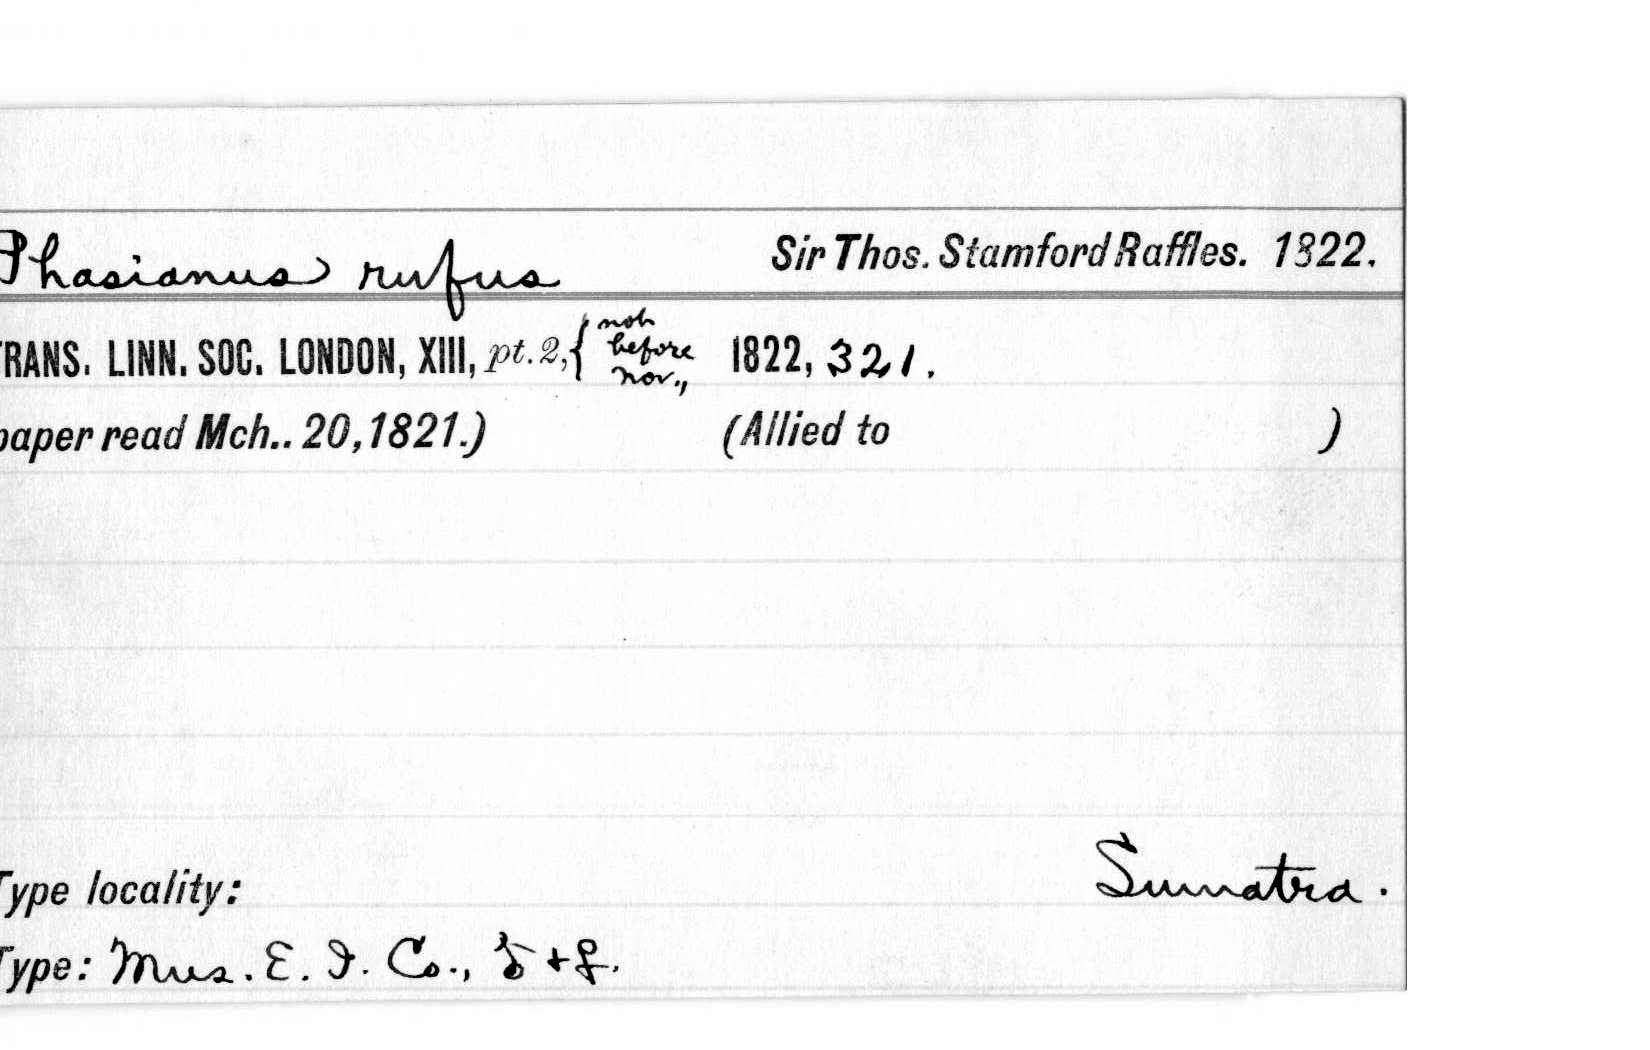 Phasianus rufus Sir Thos. Stamford Raffles. 1822.
TRANS. LINN. SOC. LONDON, XIII, pt. 2, { not before Nov., 1822, 321.
paper read Mch.. 20, 1821.) (Allied to )
Type locality: Sumatra.
Type: Mus. E. I. Co., ♂ + ♀.